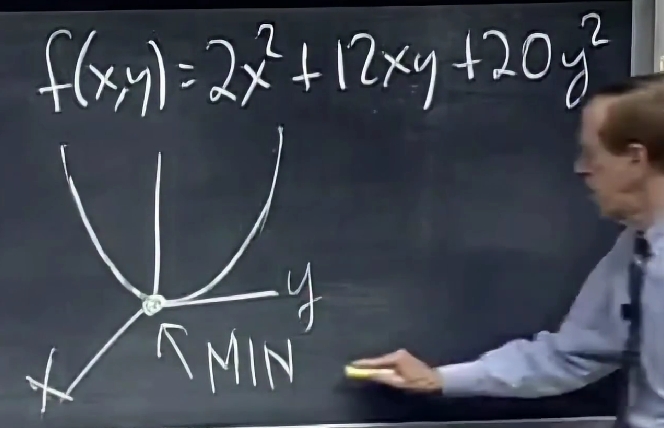 f(x,y)=2x²+12xy+20y²
y
MIN
x